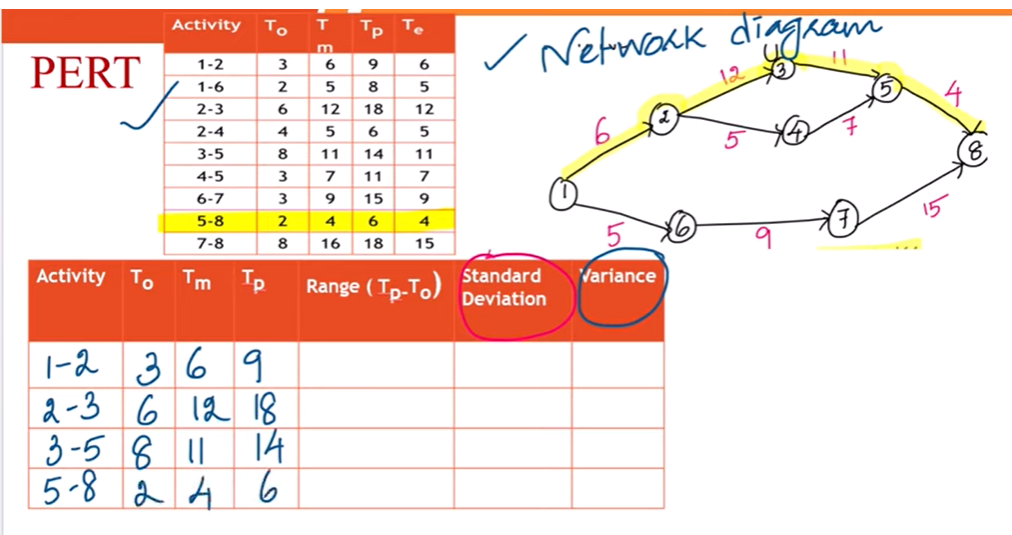 PERT
Activity To Tm Tp Te
1-2 3 6 9 6
1-6 2 5 8 5
2-3 6 12 18 12
2-4 4 5 6 5
3-5 8 11 14 11
4-5 3 7 11 7
6-7 3 9 15 9
5-8 2 4 6 4
7-8 8 16 18 15
✓ Network diagram
1
2
3
4
5
6
7
8
6
12
11
4
5
7
5
9
15
Activity To Tm Tp Range (Tp-To) Standard Deviation Variance
1-2 3 6 9
2-3 6 12 18
3-5 8 11 14
5-8 2 4 6